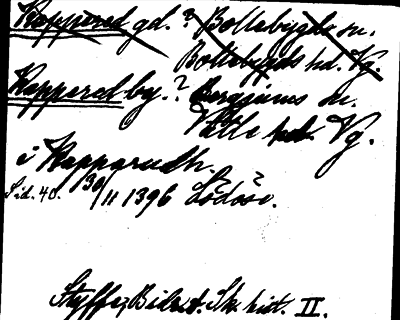 Kappered gd. ? Bollebygds sn.
Bollebygds hd. Vg.
Kappered by. ? Bergums sn.
Vättle hd. Vg.
i Kapparudh.
Sid. 40. 30/11 1396 Lödöse.
Styffe, Bidr. t. Sk. hist. II.